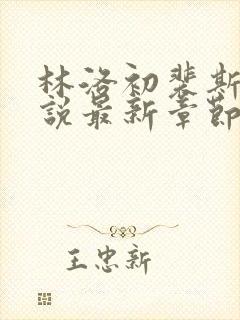 林洛初裴斯
说最新章节
王忠新